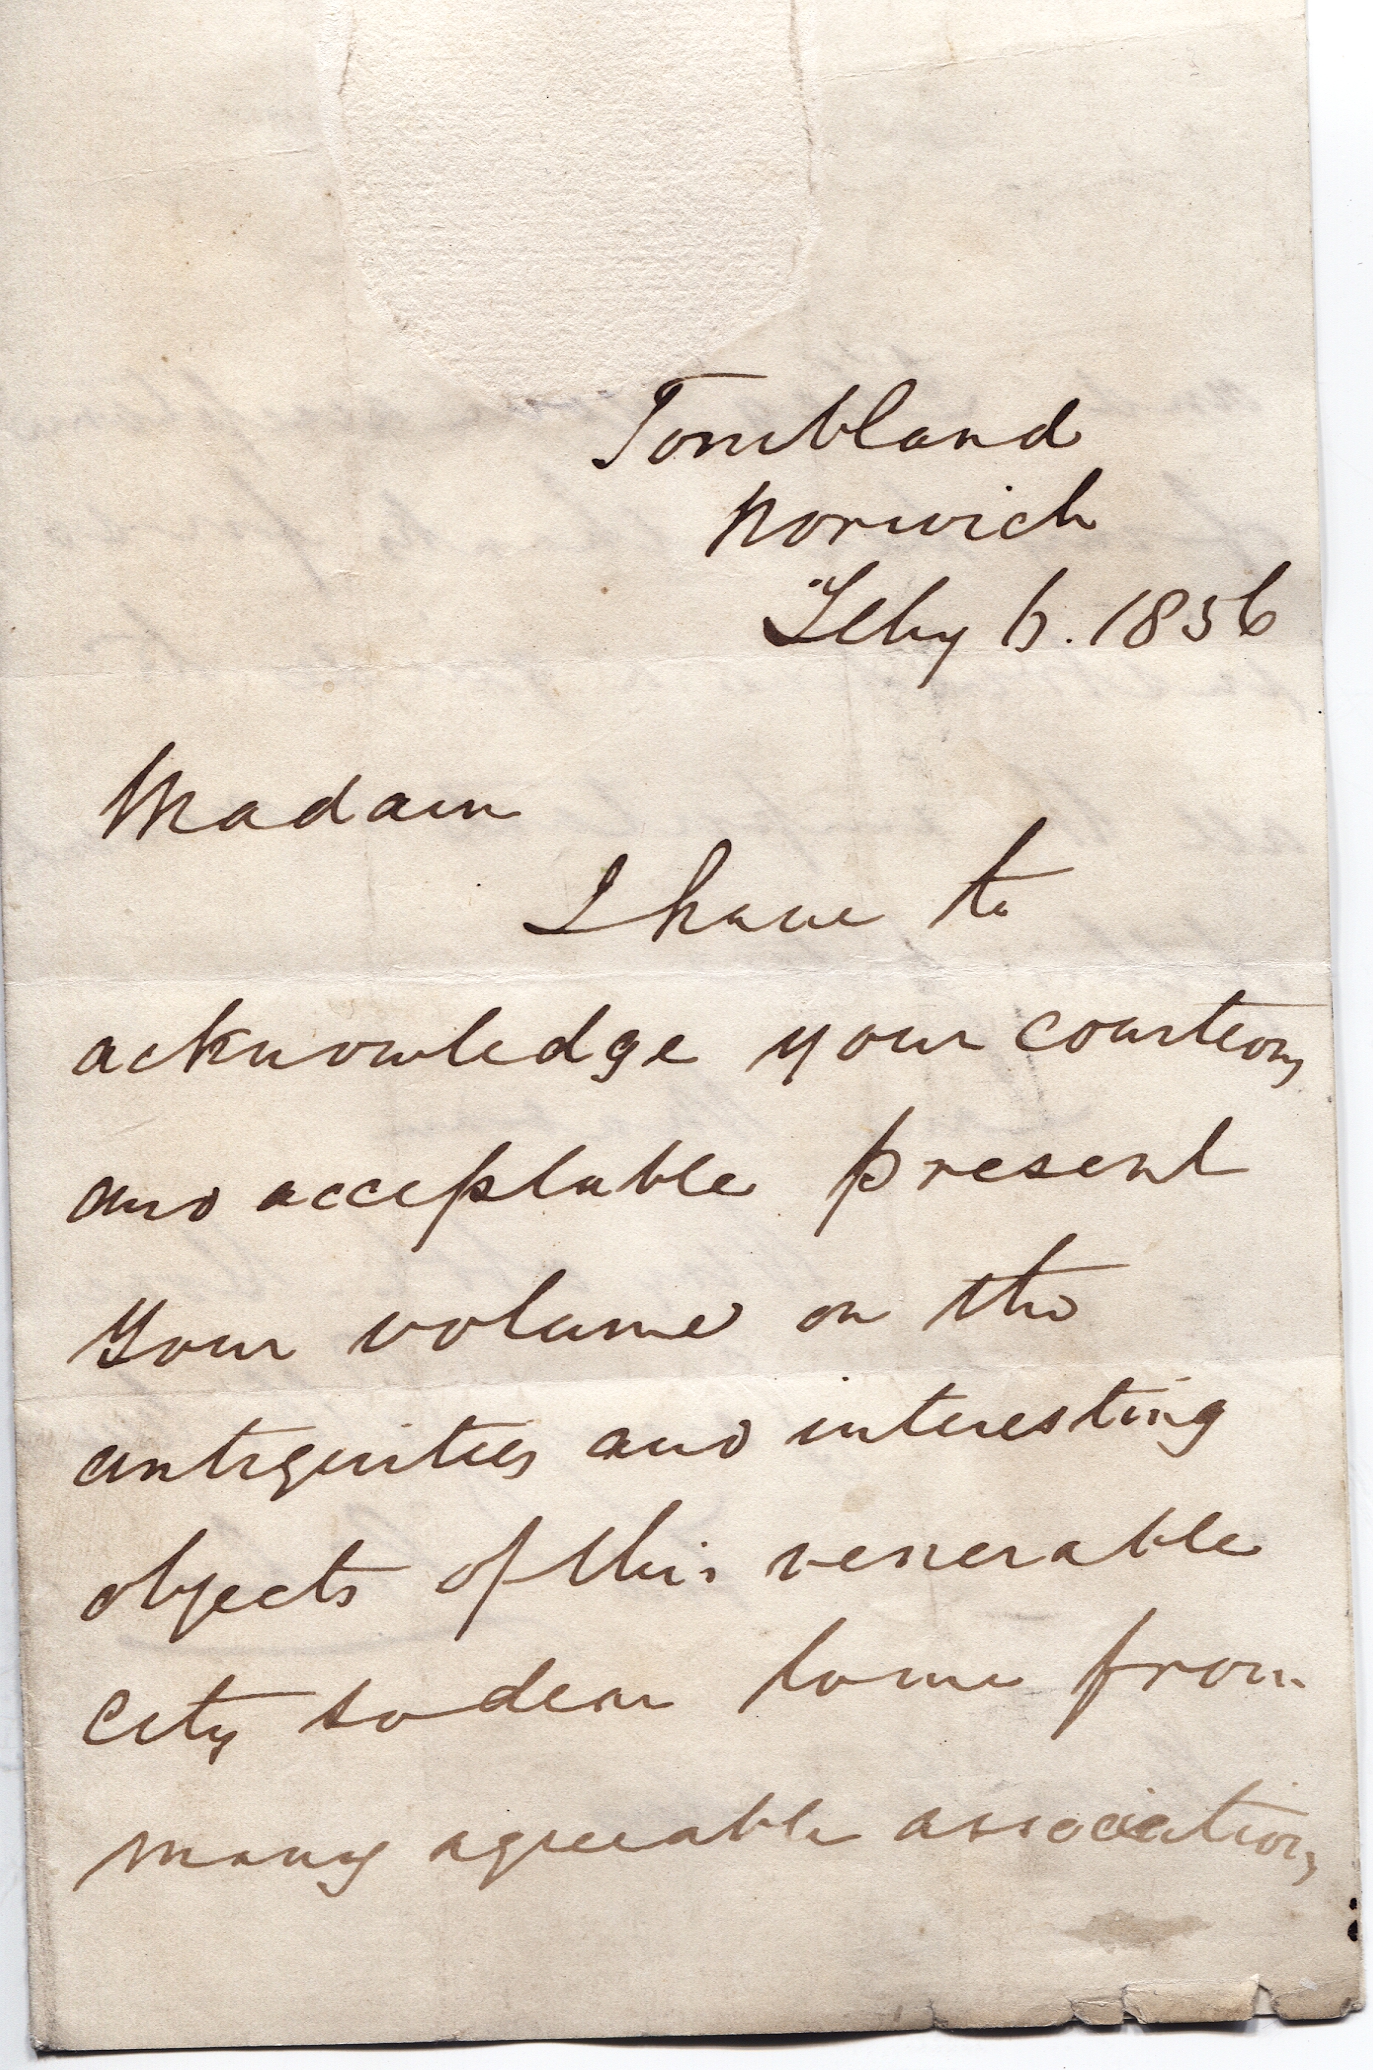 Tombland
Norwich
Feby 6. 1856
Madam
I have to
acknowledge your courteous
and acceptable present
Your volume on the
antiquities and interesting
objects of this venerable
city so dear to me from
many agreeable associations